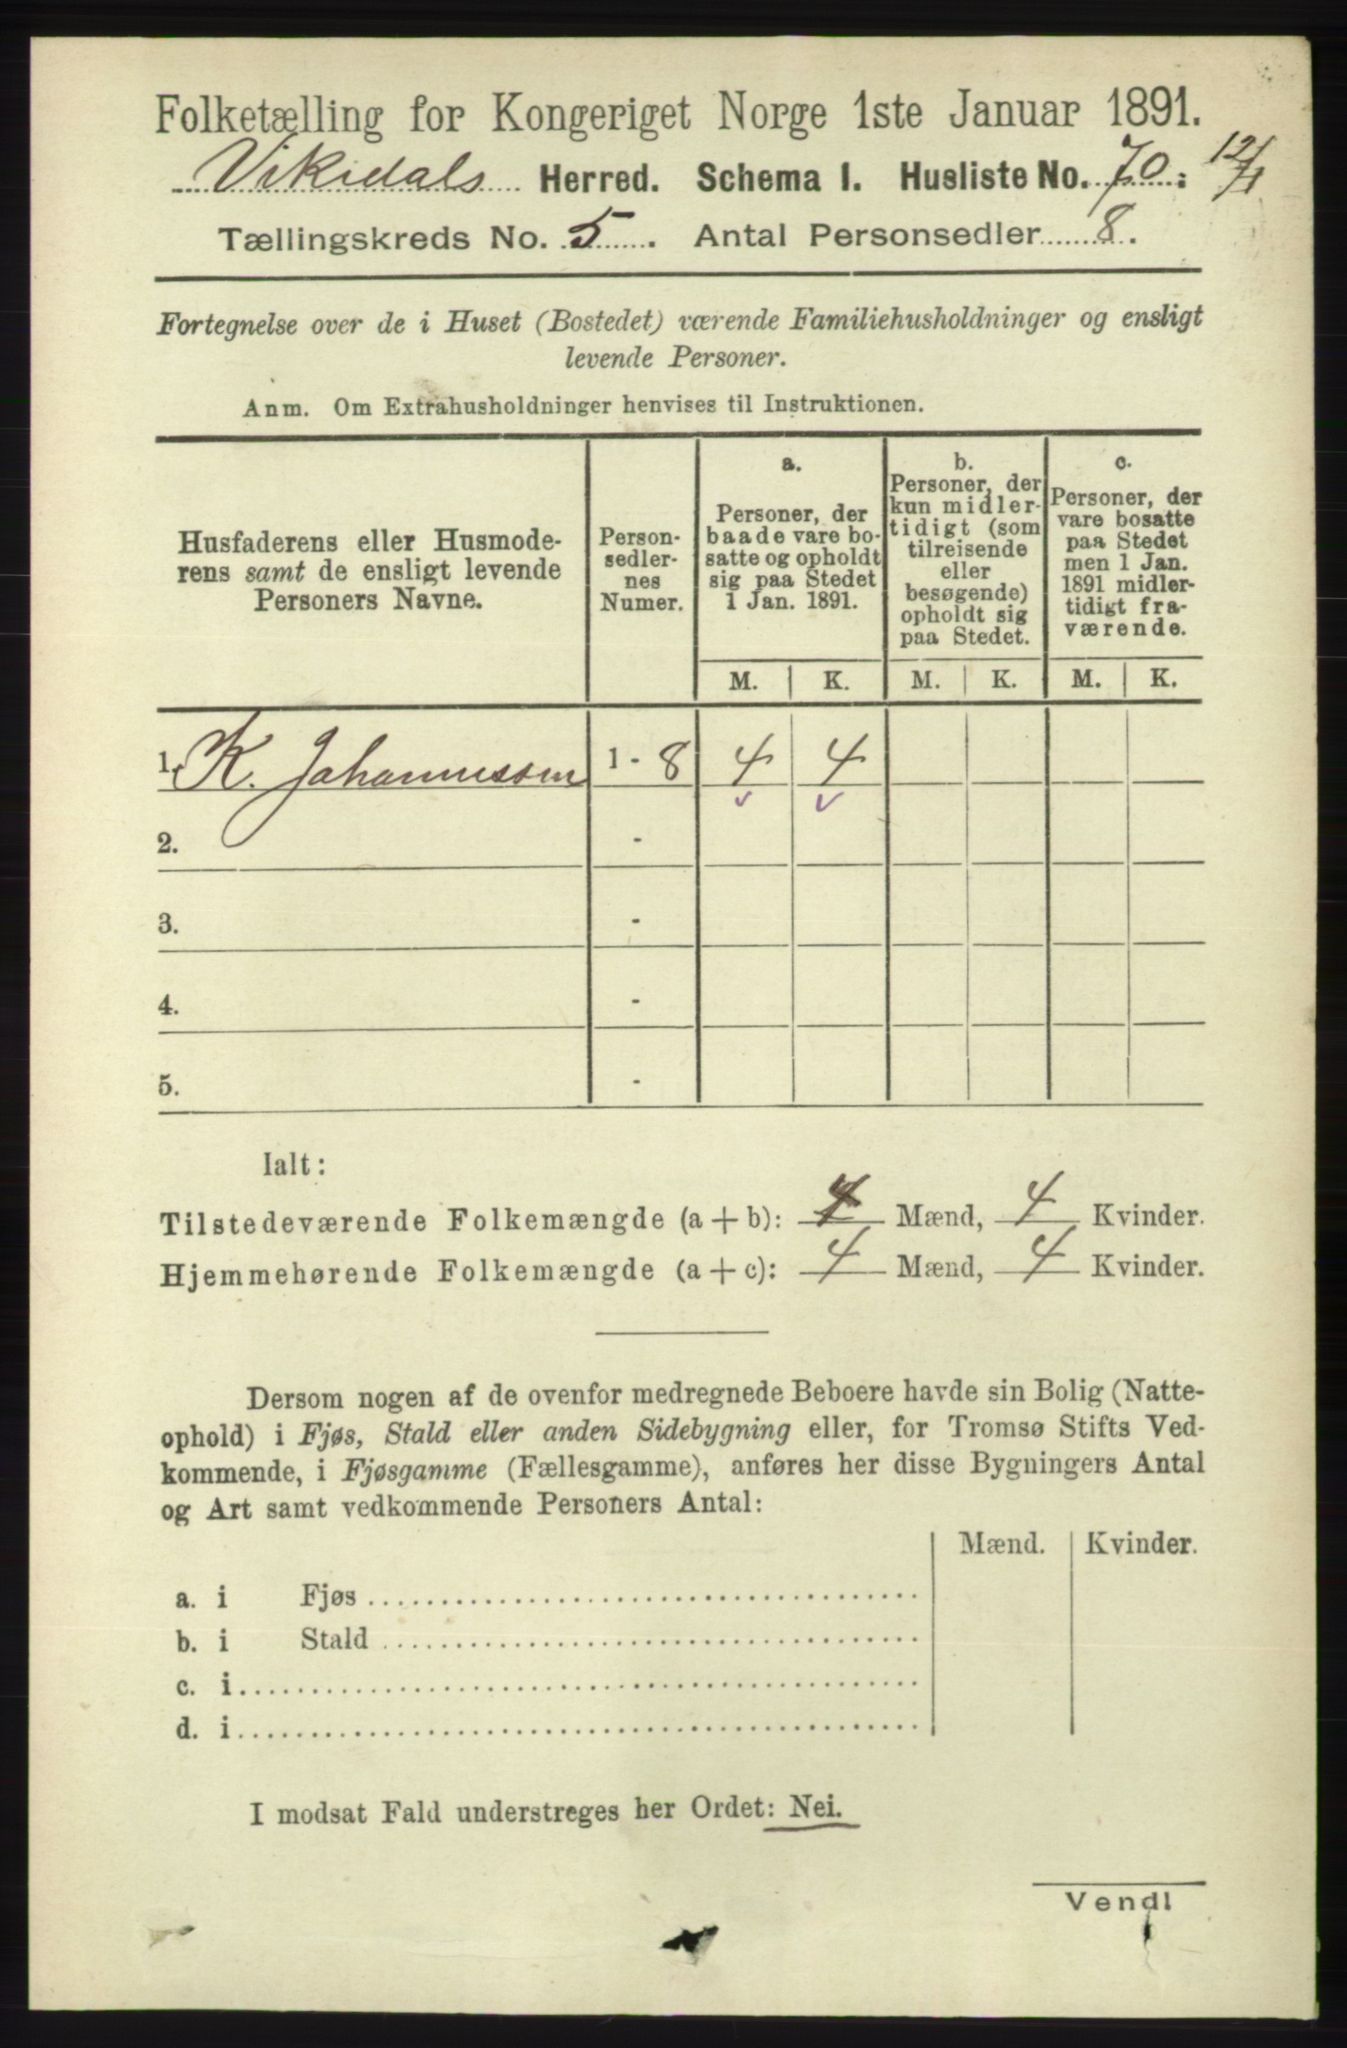 Folketælling for Kongeriget Norge 1ste Januar 1891.
Vikedals Herred. Schema I. Husliste No. 70. 12/1
Tællingskreds No. 5. Antal Personsedler 8.
Fortegnelse over de i Huset (Bostedet) værende Familiehusholdninger og ensligt
levende Personer.
Anm. Om Extrahusholdninger henvises til Instruktionen.
Husfaderens eller Husmode-
rens samt de ensligt levende
Personers Navne.
Person-
sedler-
nes
Numer.
a.
Personer, der
baade vare bo-
satte og opholdt
sig paa Stedet
1 Jan. 1891.
b.
Personer, der
kun midler-
tidigt (som
tilreisende
eller
besøgende)
opholdt sig
paa Stedet.
c.
Personer, der
vare bosatte
paa Stedet
men 1 Jan.
1891 midler-
tidigt fra-
værende.
M. K. M. K. M. K.
1. K. Johannessen 1 - 8 4 4
2. -
3. -
4. -
5. -
Ialt:
Tilstedeværende Folkemængde (a + b): 4 Mænd, 4 Kvinder.
Hjemmehørende Folkemængde (a + c): 4 Mænd, 4 Kvinder.
Dersom nogen af de ovenfor medregnede Beboere havde sin Bolig (Natte-
ophold) i Fjøs, Stald eller anden Sidebygning eller, for Tromsø Stifts Ved-
kommende, i Fjøsgamme (Fællesgamme), anføres her disse Bygningers Antal
og Art samt vedkommende Personers Antal:
Mænd. Kvinder.
a. i Fjøs
b. i Stald
c. i
d. i
I modsat Fald understreges her Ordet: Nei.
Vend!